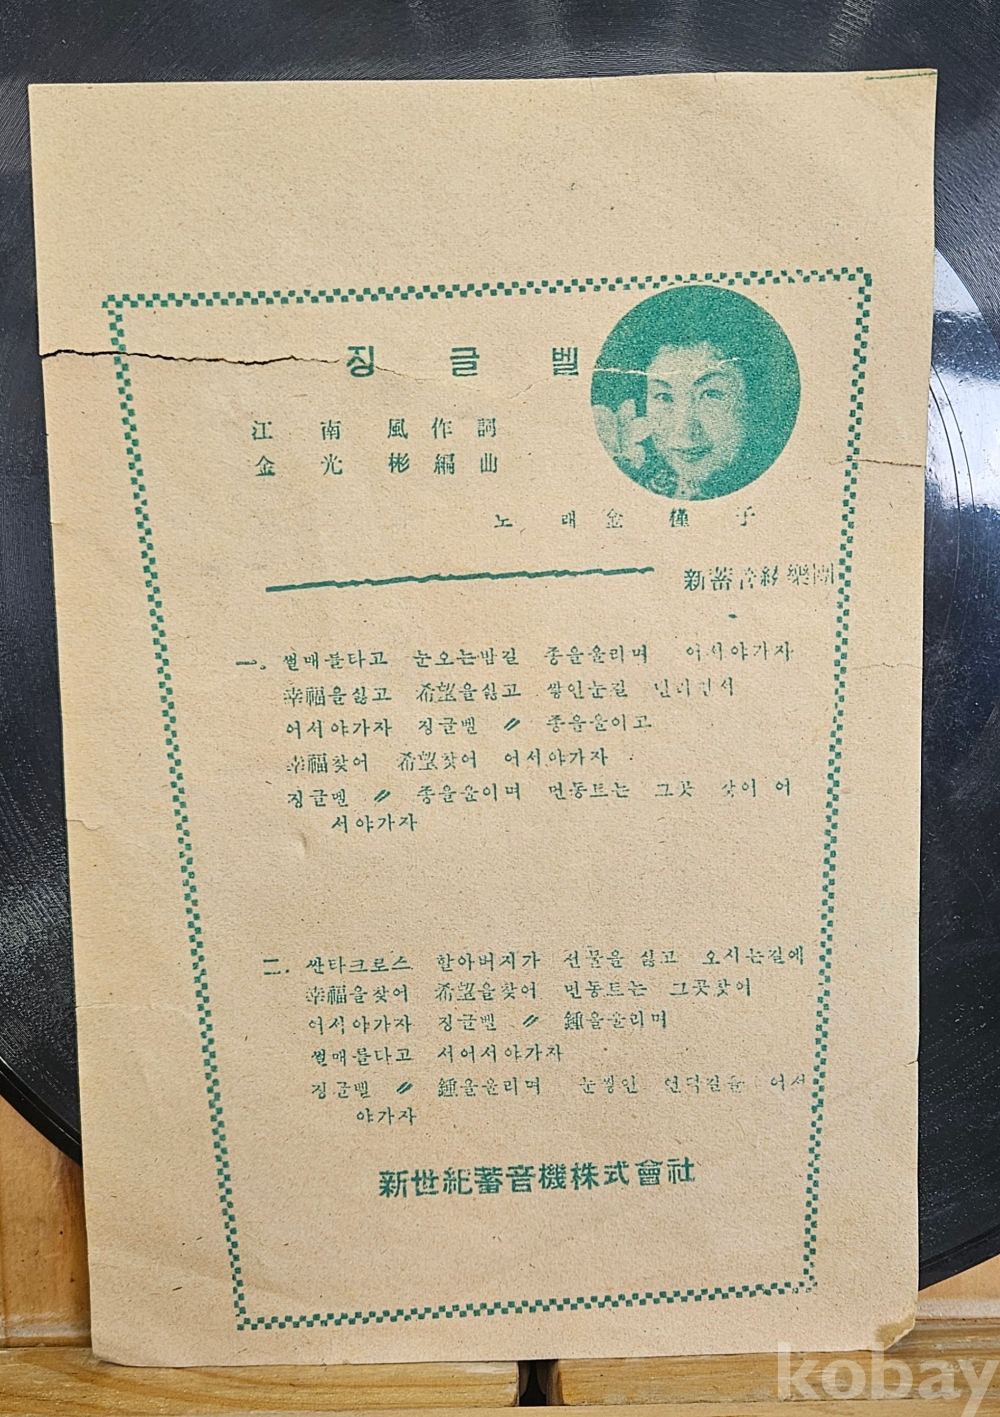 징글벨
江南風作詞
金光彬編曲
노래 金槿子
新蓄音 樂團
一. 썰매를타고 눈오는밤길 종을울리며 어서야가자
幸福을싫고 希望을싫고 쌓인눈길
어서야가자 징글벨 〃 종을울이고
幸福찾어 希望찾어 어서야가자
징글벨 〃 종을울이며 먼동트는 그곳 찾어 어
서야가자
二. 싼타크로스 할아버지가 선물을 싫고 오시는길에
幸福을찾어 希望을찾어 먼동트는 그곳찾어
어서야가자 징글벨 〃 鍾을울리며
썰매를타고 서어서야가자
징글벨 〃 鍾을울리며 눈쌓인 언덕길을 어서
야가자
新世紀蓄音機株式會社
kobay